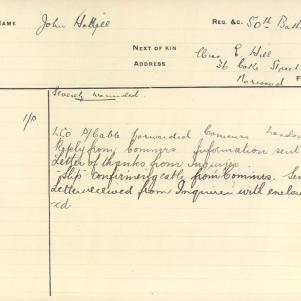 NAME John REG. &C. 50th Batt
NEXT OF KIN E Hill
ADDRESS 36 Street
Norwood F
Severely wounded.
1/0 LCO Cable forwarded Commrs London
Reply from Commrs. Information sent
Letter of thanks from Inquirer
Slip confirming cable from Commrs. Sen
Letter received from Inquirer with enclos
-ed